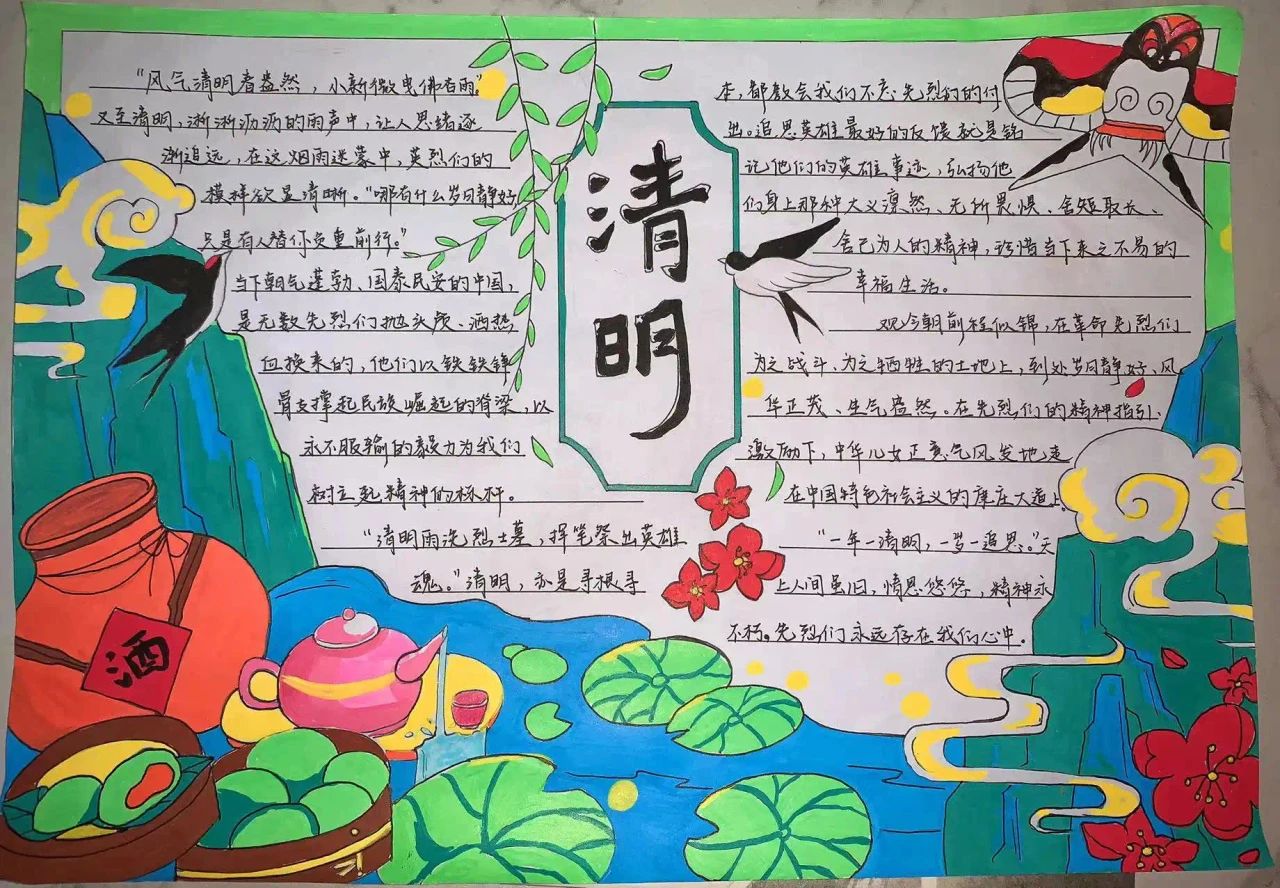 “风气清明春盎然，小新微曳佛杏雨。”
又至清明，淅淅沥沥的雨声中，让人思绪逐
渐追远，在这烟雨迷蒙中，英烈们的
模样欲显清晰。“哪有什么岁月静好，
只是有人替你负重前行。”
当下朝气蓬勃、国泰民安的中国，
是无数先烈们抛头颅、洒热
血换来的，他们以铁铁铮
骨支撑起民族崛起的脊梁，以
永不服输的毅力为我们
树立起精神的标杆。
“清明雨洗烈士墓，挥笔祭出英雄
魂。”清明，亦是寻根寻
清明
本，都教会我们不忘先烈们的付
出。追思英雄最好的反馈就是铭
记他们的英雄事迹，弘扬他
们身上那种大义凛然、无所畏惧、舍短取长、
舍己为人的精神，珍惜当下来之不易的
幸福生活。
观今朝前程似锦，在革命先烈们
为之战斗、为之牺牲的土地上，到处岁月静好、风
华正茂、生气盎然。在先烈们的精神指引、
激励下，中华儿女正意气风发地走
在中国特色社会主义的康庄大道上。
“一年一清明，一岁一追思。”天
上人间虽旧，情思悠悠，精神永
不朽。先烈们永远存在我们心中。
酒